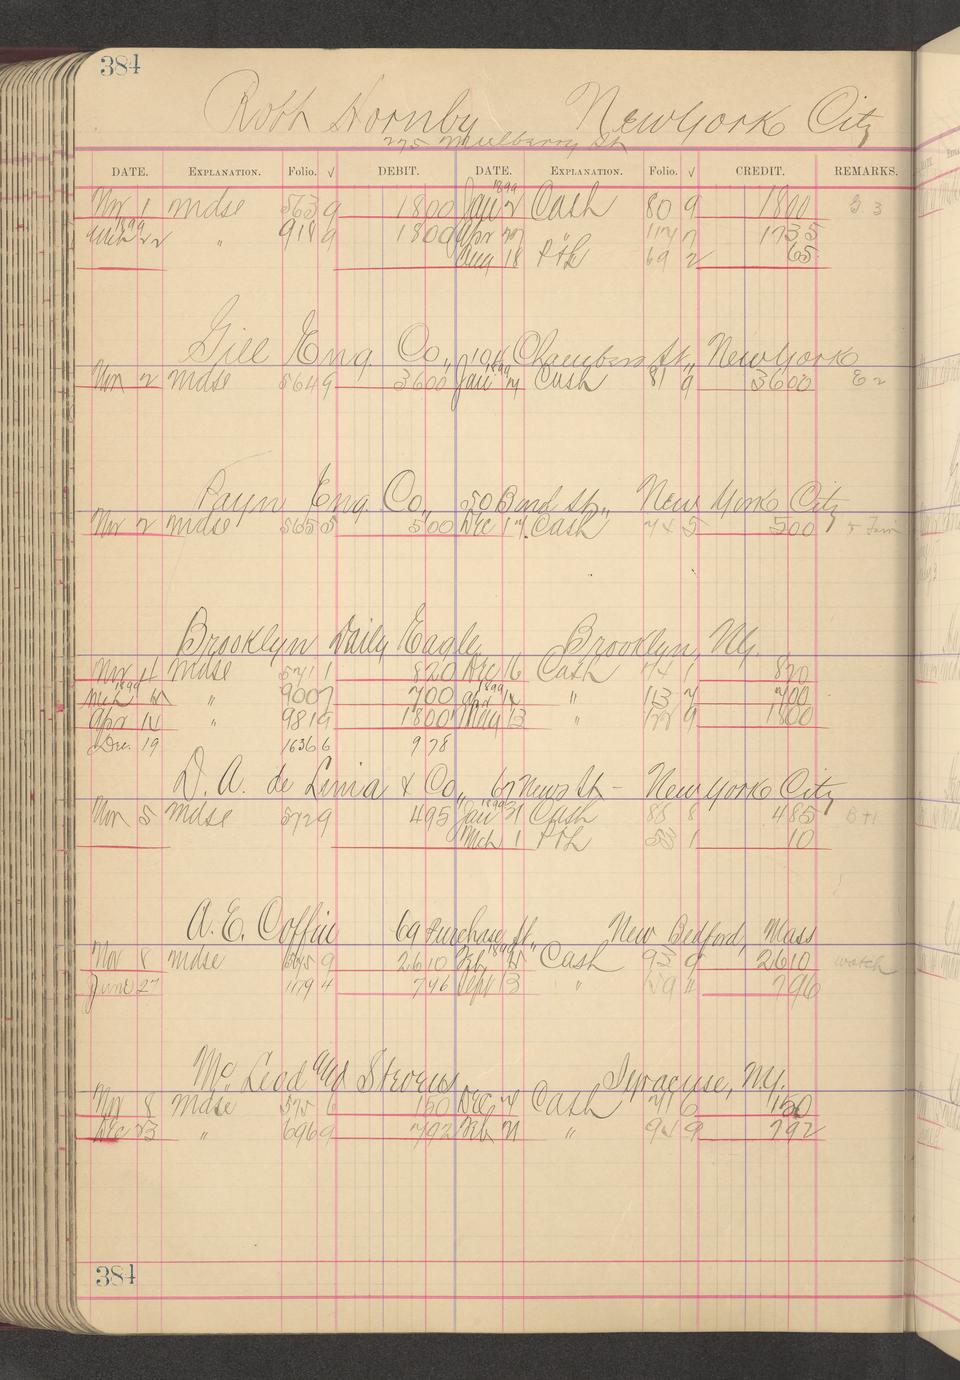 384
Robt Hornby New York City
275 Mulberry St
DATE. EXPLANATION. Folio. √ DEBIT. DATE. EXPLANATION. Folio. √ CREDIT. REMARKS.
Nov 1 mdse 563 9 1800 1899 Jan 2 Cash 80 9 1800
1899 Mch 22 " 918 9 1800 Apr 27 " 117 7 1735
Aug 18 P+L 69 2 65
Gill Eng. Co., 104 Chambers St., New York
Nov 2 mdse 564 9 3600 1899 Jan 7 Cash 81 9 3600 E 2
Payn Eng. Co., 50 Bond St., New York City
Nov 2 mdse 565 5 500 Dec 17 Cash 74 5 500
Brooklyn Daily Eagle, Brooklyn, Ny.
Nov 4 mdse 571 1 820 Dec 16 Cash 74 1 820
1899 Mch 18 " 900 7 700 1899 Apr 14 " 113 7 700
Apr 14 " 981 9 1800 May 13 " 122 9 1800
Dec. 19 1636 6 978
D. A. de Lima & Co., 67 New St - New York City
Nov 5 mdse 572 9 495 1899 Jan 31 Cash 86 8 485
Mch 1 P+L 53 1 10
A. E. Coffin 69 Purchase St., New Bedford, Mass
Nov 8 mdse 575 9 2610 1899 Feb 25 Cash 93 9 2610 watch
June 27 1179 4 796 Sept 3 " 796
Mc Leod and Stevens Syracuse, N.y.
Nov 8 mdse 575 6 150 Dec 7 Cash 71 6 150
Dec 23 " 696 9 792 Feb 21 " 92 9 792
384